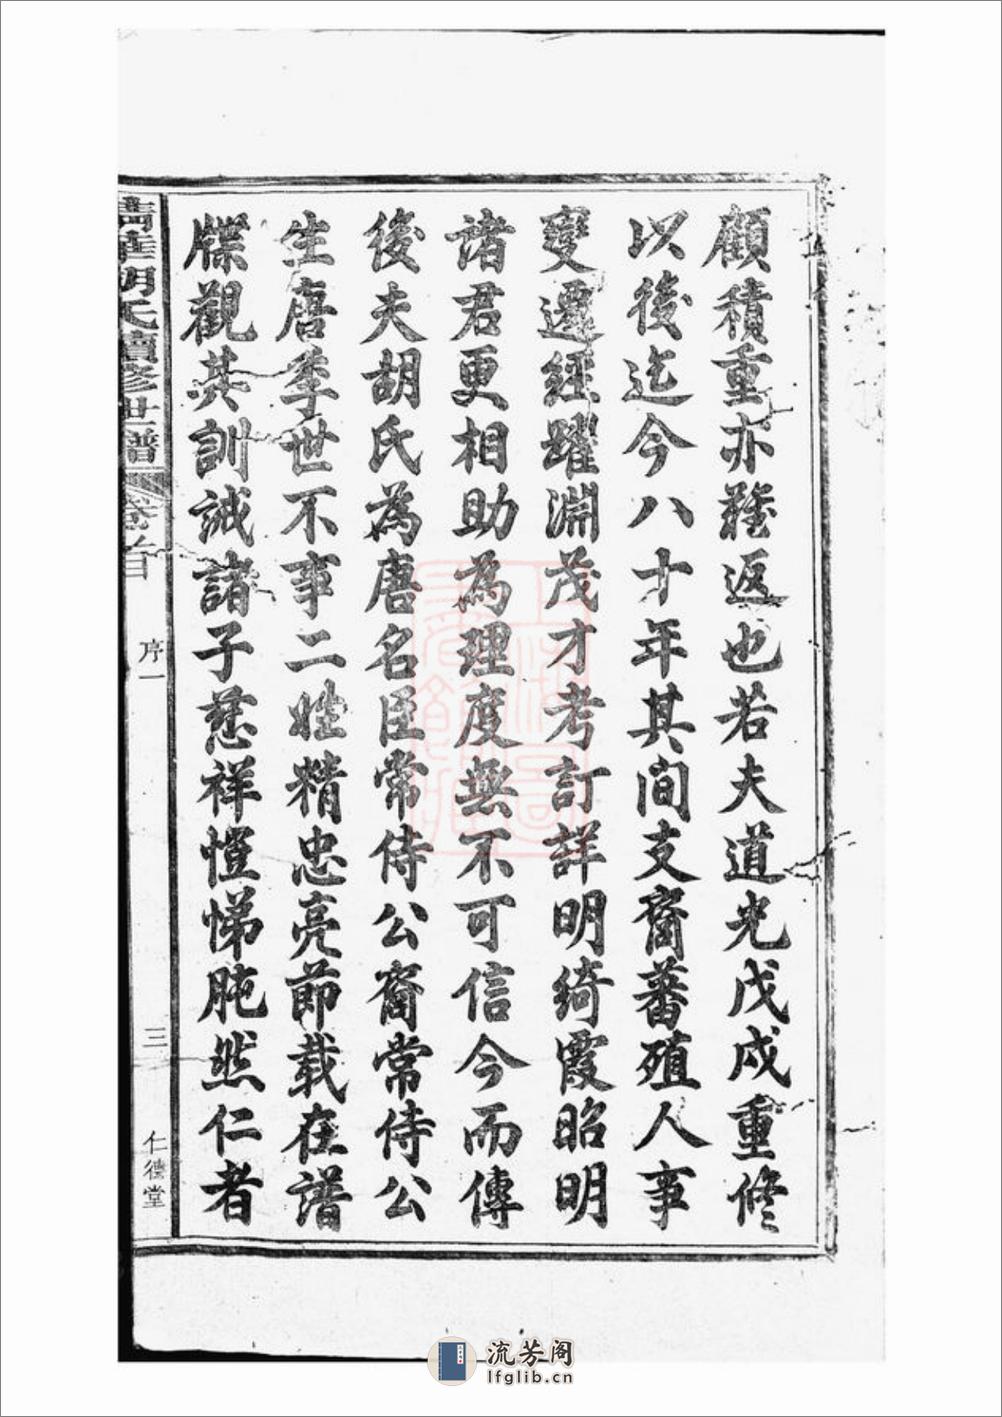 顧積重亦難返也若夫道光戊戌重修
以後迄今八十年其間支裔蕃殖人事
變遷經躍淵茂才考訂詳明綺霞昭明
诸君更相助為理度無不可信今而傳
後夫胡氏為唐名臣常侍公裔常侍公
生唐季世不事二姓精忠亮節載在譜
牒觀其訓誡諸子慈祥愷悌肫然仁者
清華胡氏續修世譜
卷首
序一
三
仁德堂
流芳阁
lfglib.cn